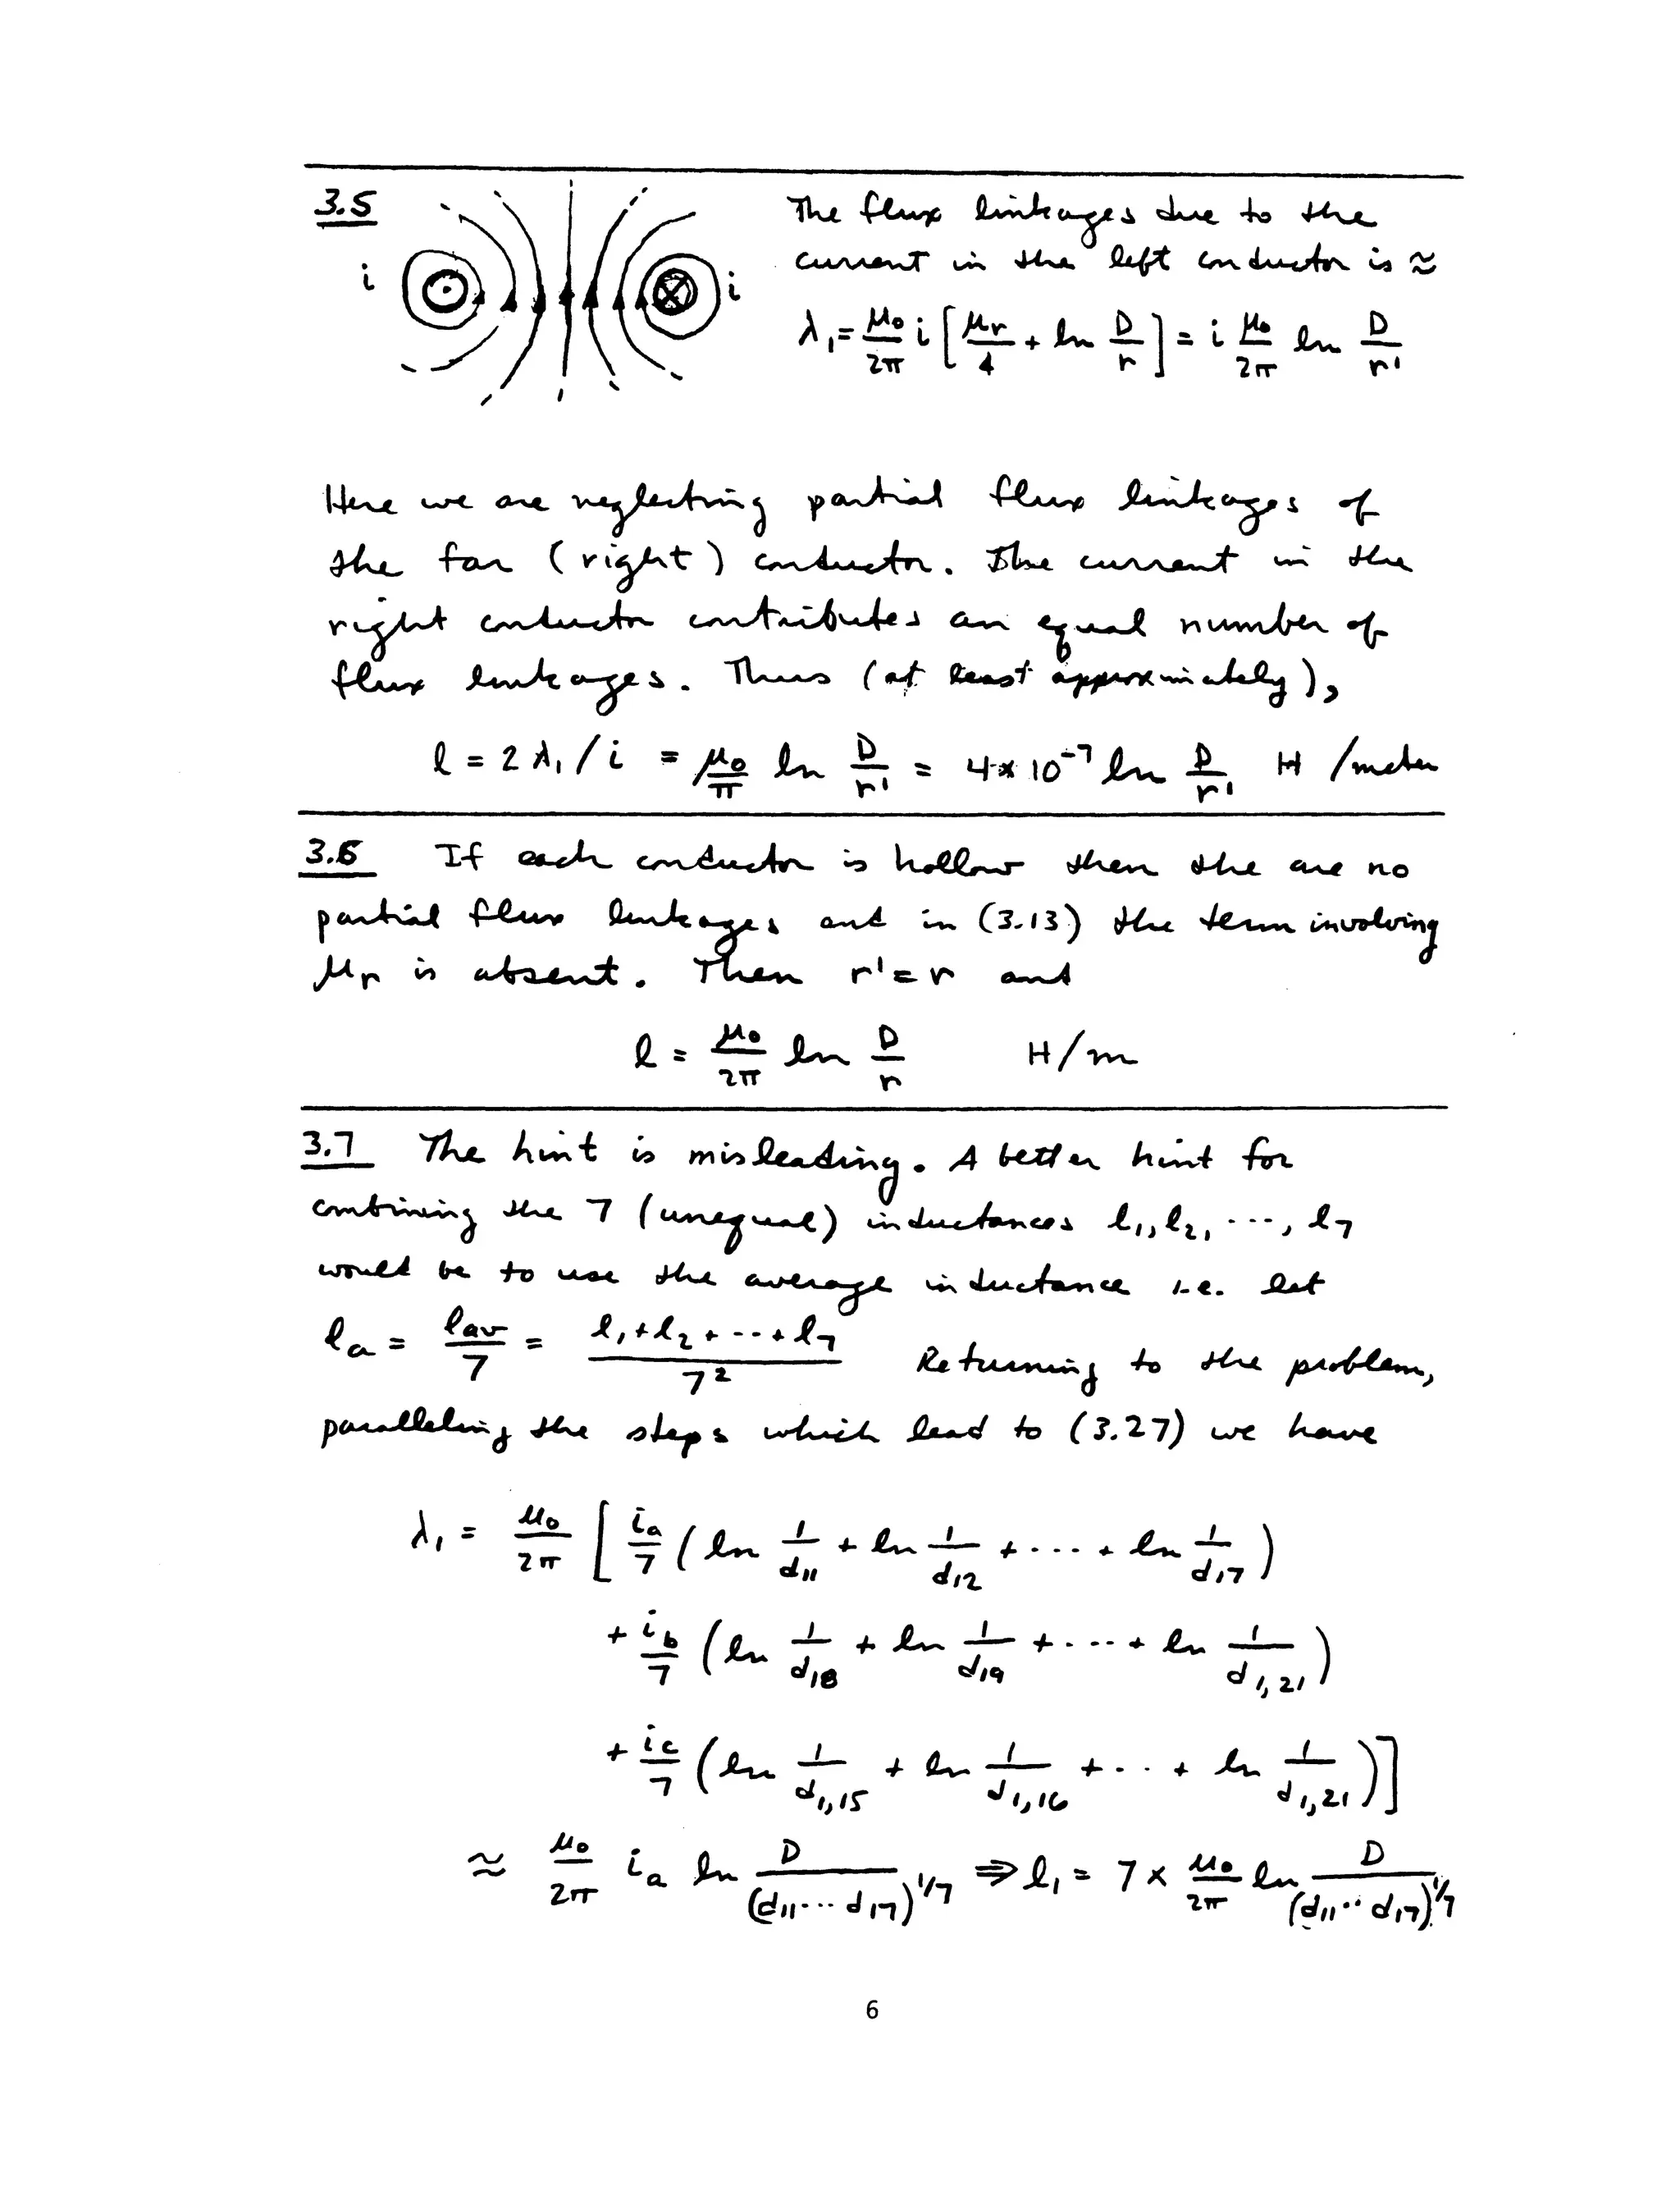 3.5
i
i
The flux linkages due to the
current in the left conductor is ≈
λ₁ = μ₀/2π i [μr/4 + ln D/r] = i μ₀/2π ln D/r'
Here we are neglecting partial flux linkages of
the far (right) conductor. The current in the
right conductor contributes an equal number of
flux linkages. Thus (at least approximately),
l = 2 λ₁/i = μ₀/π ln D/r' = 4×10⁻⁷ ln D/r' H/meter
3.6 If each conductor is hollow then the are no
partial flux linkages and in (3.13) the term involving
μr is absent. Then r' = r and
l = μ₀/2π ln D/r H/m
3.7 The hint is misleading. A better hint for
combining the 7 (unequal) inductances l₁, l₂, ---, l₇
would be to use the average inductance i.e. let
lₐ = lav/7 = l₁+l₂+---+l₇/7² Returning to the problem,
paralleling the steps which lead to (3.27) we have
λ₁ = μ₀/2π [ iₐ/7 ( ln 1/d₁₁ + ln 1/d₁₂ + ---- + ln 1/d₁₇ )
+ i_b/7 ( ln 1/d₁₈ + ln 1/d₁₉ + ---- + ln 1/d₁,₂₁ )
+ i_c/7 ( ln 1/d₁,₁₅ + ln 1/d₁,₁₆ + --- + ln 1/d₁,₂₁ )]
≈ μ₀/2π iₐ ln D/(d₁₁---d₁₇)^1/7 ⇒ l₁ = 7 × μ₀/2π ln D/(d₁₁··d₁₇)^1/7
6